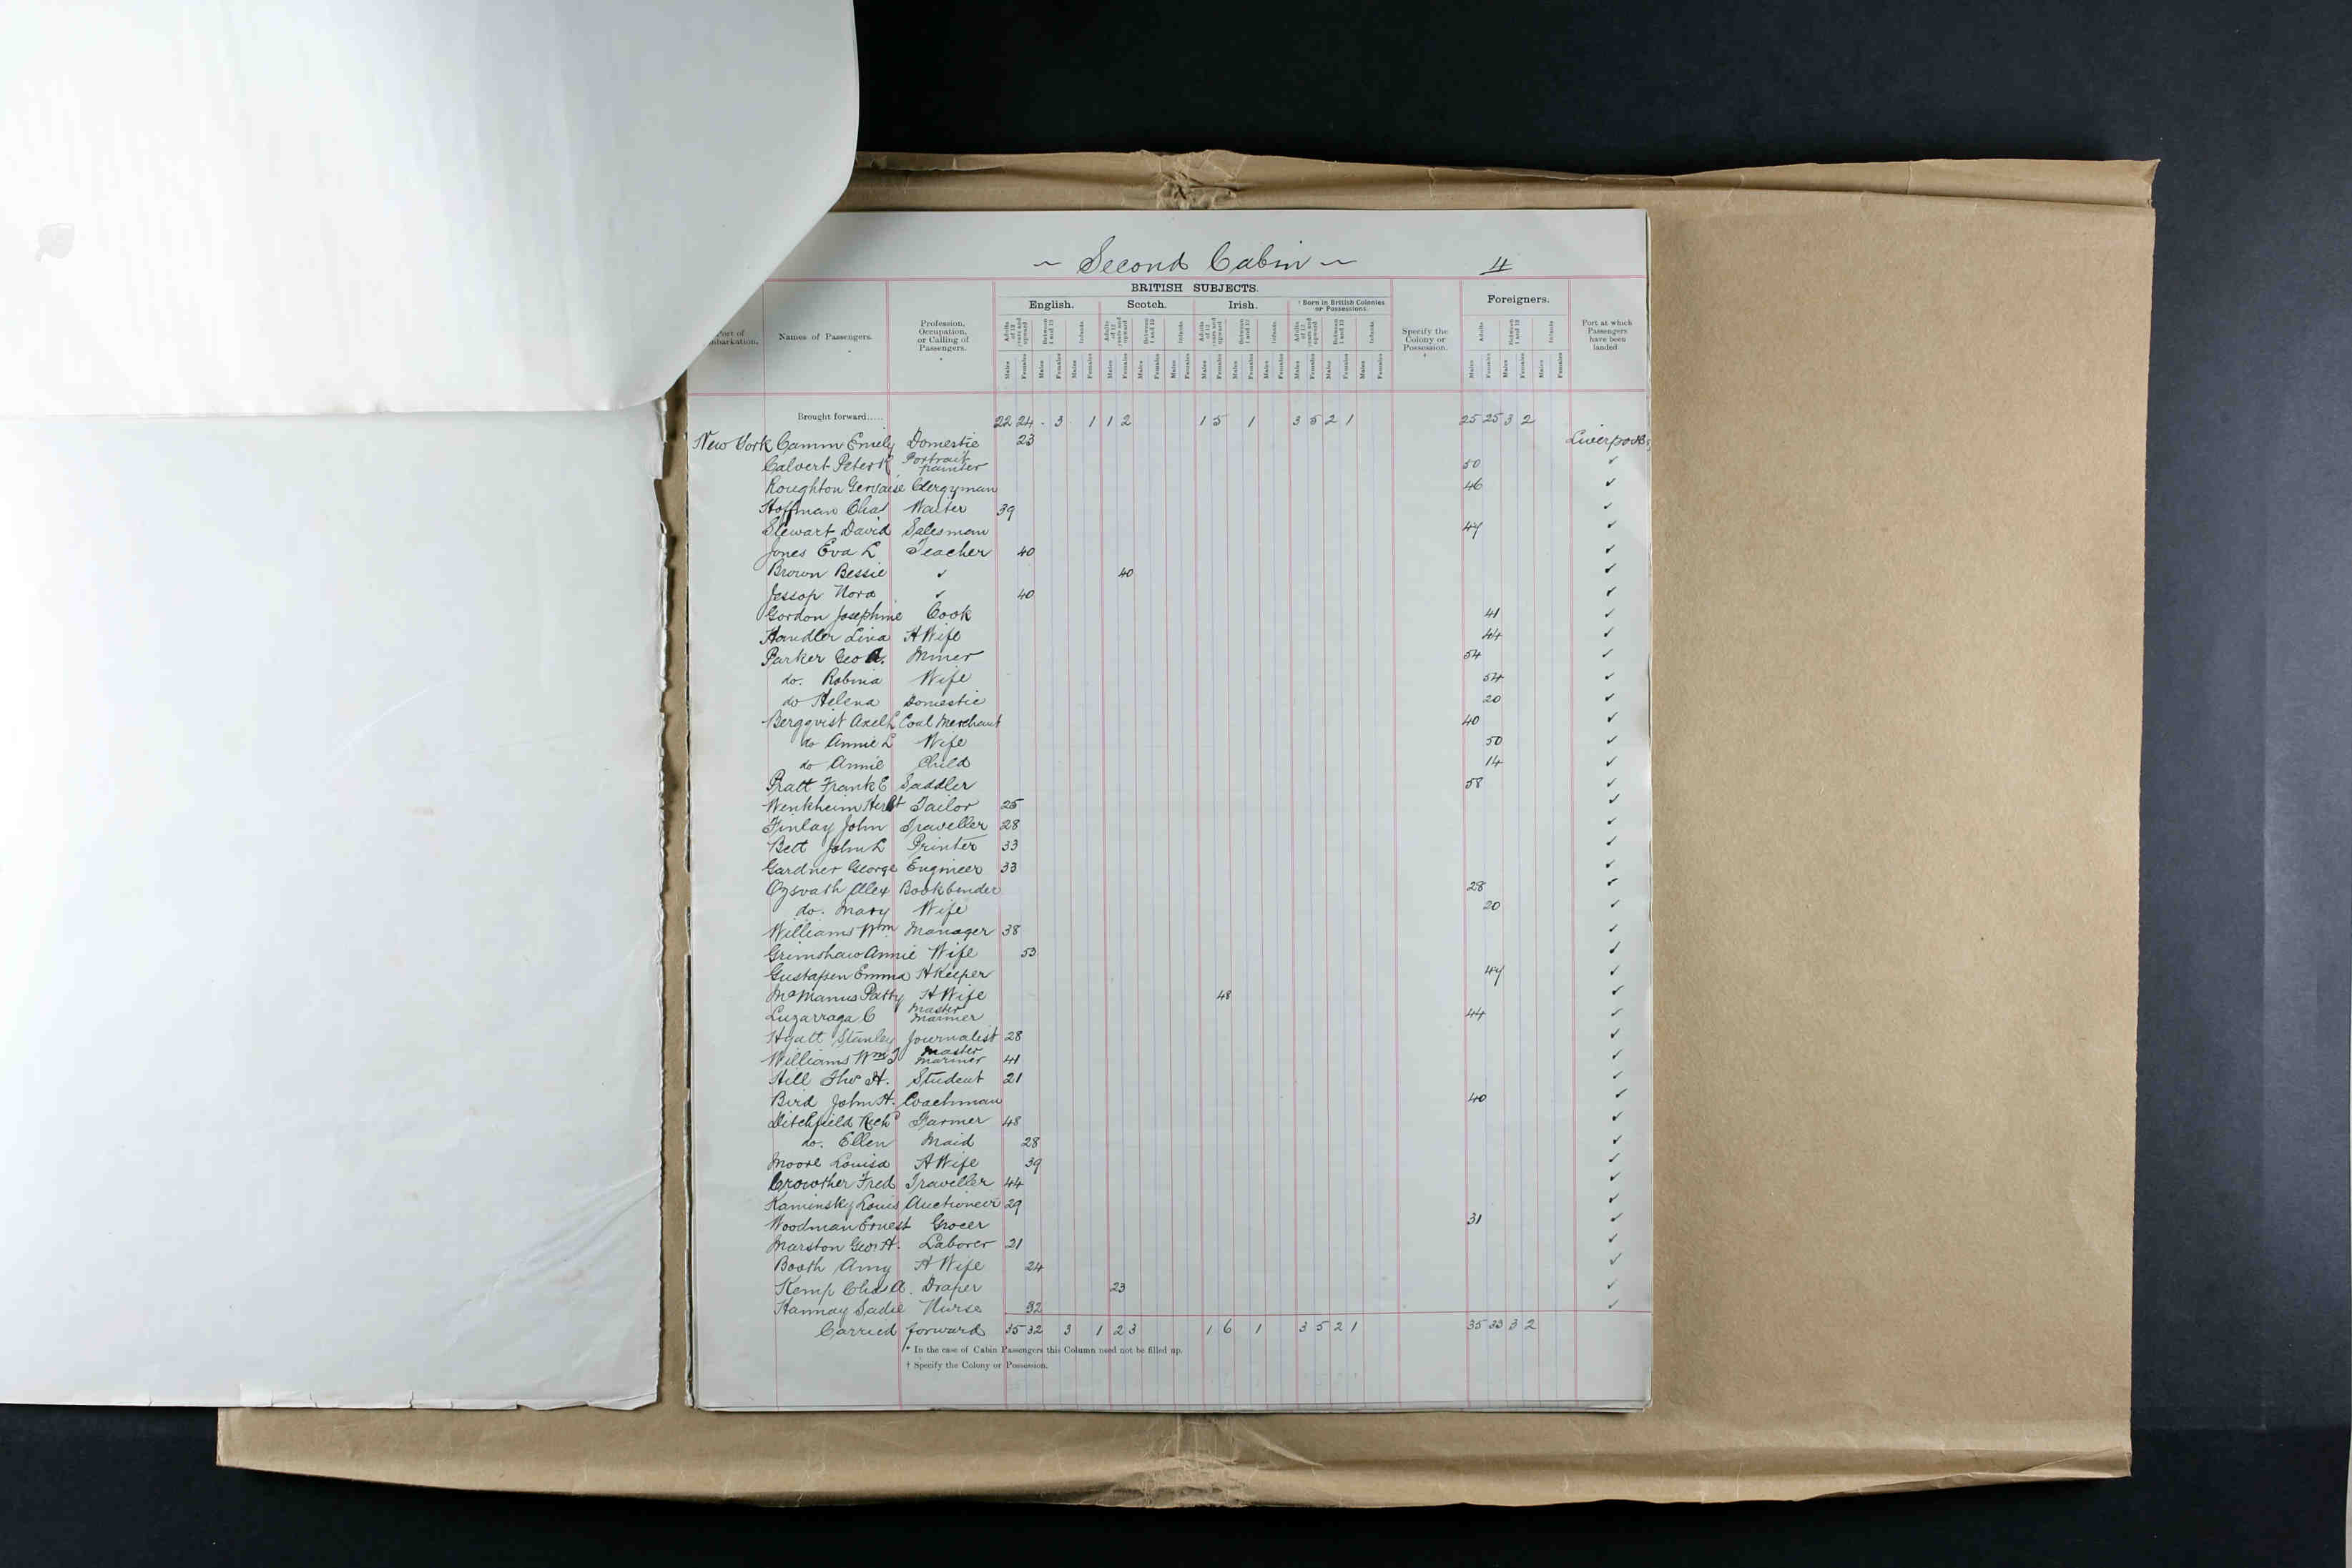 ~ Second Cabin ~ 4
BRITISH SUBJECTS.
English. Scotch. Irish. † Born in British Colonies or Possessions. Foreigners.
Port of Embarkation. Names of Passengers. Profession, Occupation, or Calling of Passengers. * Specify the Colony or Possession. † Port at which Passengers have been landed
Adults of 12 years and upward Between 1 and 12 Infants Adults of 12 years and upward Between 1 and 12 Infants Adults of 12 years and upward Between 1 and 12 Infants Adults of 12 years and upward Between 1 and 12 Infants Adults Between 1 and 12 Infants
Males Females Males Females Males Females Males Females Males Females Males Females Males Females Males Females Males Females Males Females Males Females Males Females Males Females Males Females Males Females
Brought forward..... 22 24 - 3 1 1 2 1 5 1 3 5 2 1 25 25 3 2
New York Camm Emely Domestic 23 Liverpool
Calvert Peter R Portrait painter 50 ✓
Roughton Gervaise Clergyman 46 ✓
Hoffman Chas Waiter 39 ✓
Stewart David Salesman 47 ✓
Jones Eva L Teacher 40 ✓
Brown Bessie ✓ 40 ✓
Jessop Nora ✓ 40 ✓
Gordon Josephine Cook 41 ✓
Handler Lina H Wife 44 ✓
Parker Geo A. Miner 54 ✓
do. Robina Wife 54 ✓
do Helena Domestic 20 ✓
Bergqvist Axel L Coal Merchant 40 ✓
do Annie L Wife 50 ✓
do Annie Child 14 ✓
Pratt Frank E Saddler 58 ✓
Wenkheim Herbt Tailor 25 ✓
Finlay John Traveller 28 ✓
Bett John L Printer 33 ✓
Gardner George Engineer 33 ✓
Ozsvath Alex Bookbinder 28 ✓
do. Mary Wife 20 ✓
Williams Wm Manager 38 ✓
Grimshaw Annie Wife 53 ✓
Gustafsen Emma H Keeper 47 ✓
McManus Patty H Wife 48 ✓
Luzarraga C Master Mariner 44 ✓
Hyatt Stanley Journalist 28 ✓
Williams Wm J Master Mariner 41 ✓
Hill Thos H. Student 21 ✓
Bird John H. Coachman 40 ✓
Ditchfield Richd Farmer 48 ✓
do. Ellen Maid 28 ✓
Moore Louisa H Wife 39 ✓
Crowther Fred Traveller 44 ✓
Kaminsky Louis Auctioneer 29 ✓
Woodman Ernest Grocer 31 ✓
Marston Geo H. Laborer 21 ✓
Booth Amy H Wife 24 ✓
Kemp Chas A. Draper 23 ✓
Hannay Sadie Nurse 32 ✓
Carried forward 35 32 3 1 2 3 1 6 1 3 5 2 1 35 33 3 2
* In the case of Cabin Passengers this Column need not be filled up.
† Specify the Colony or Possession.